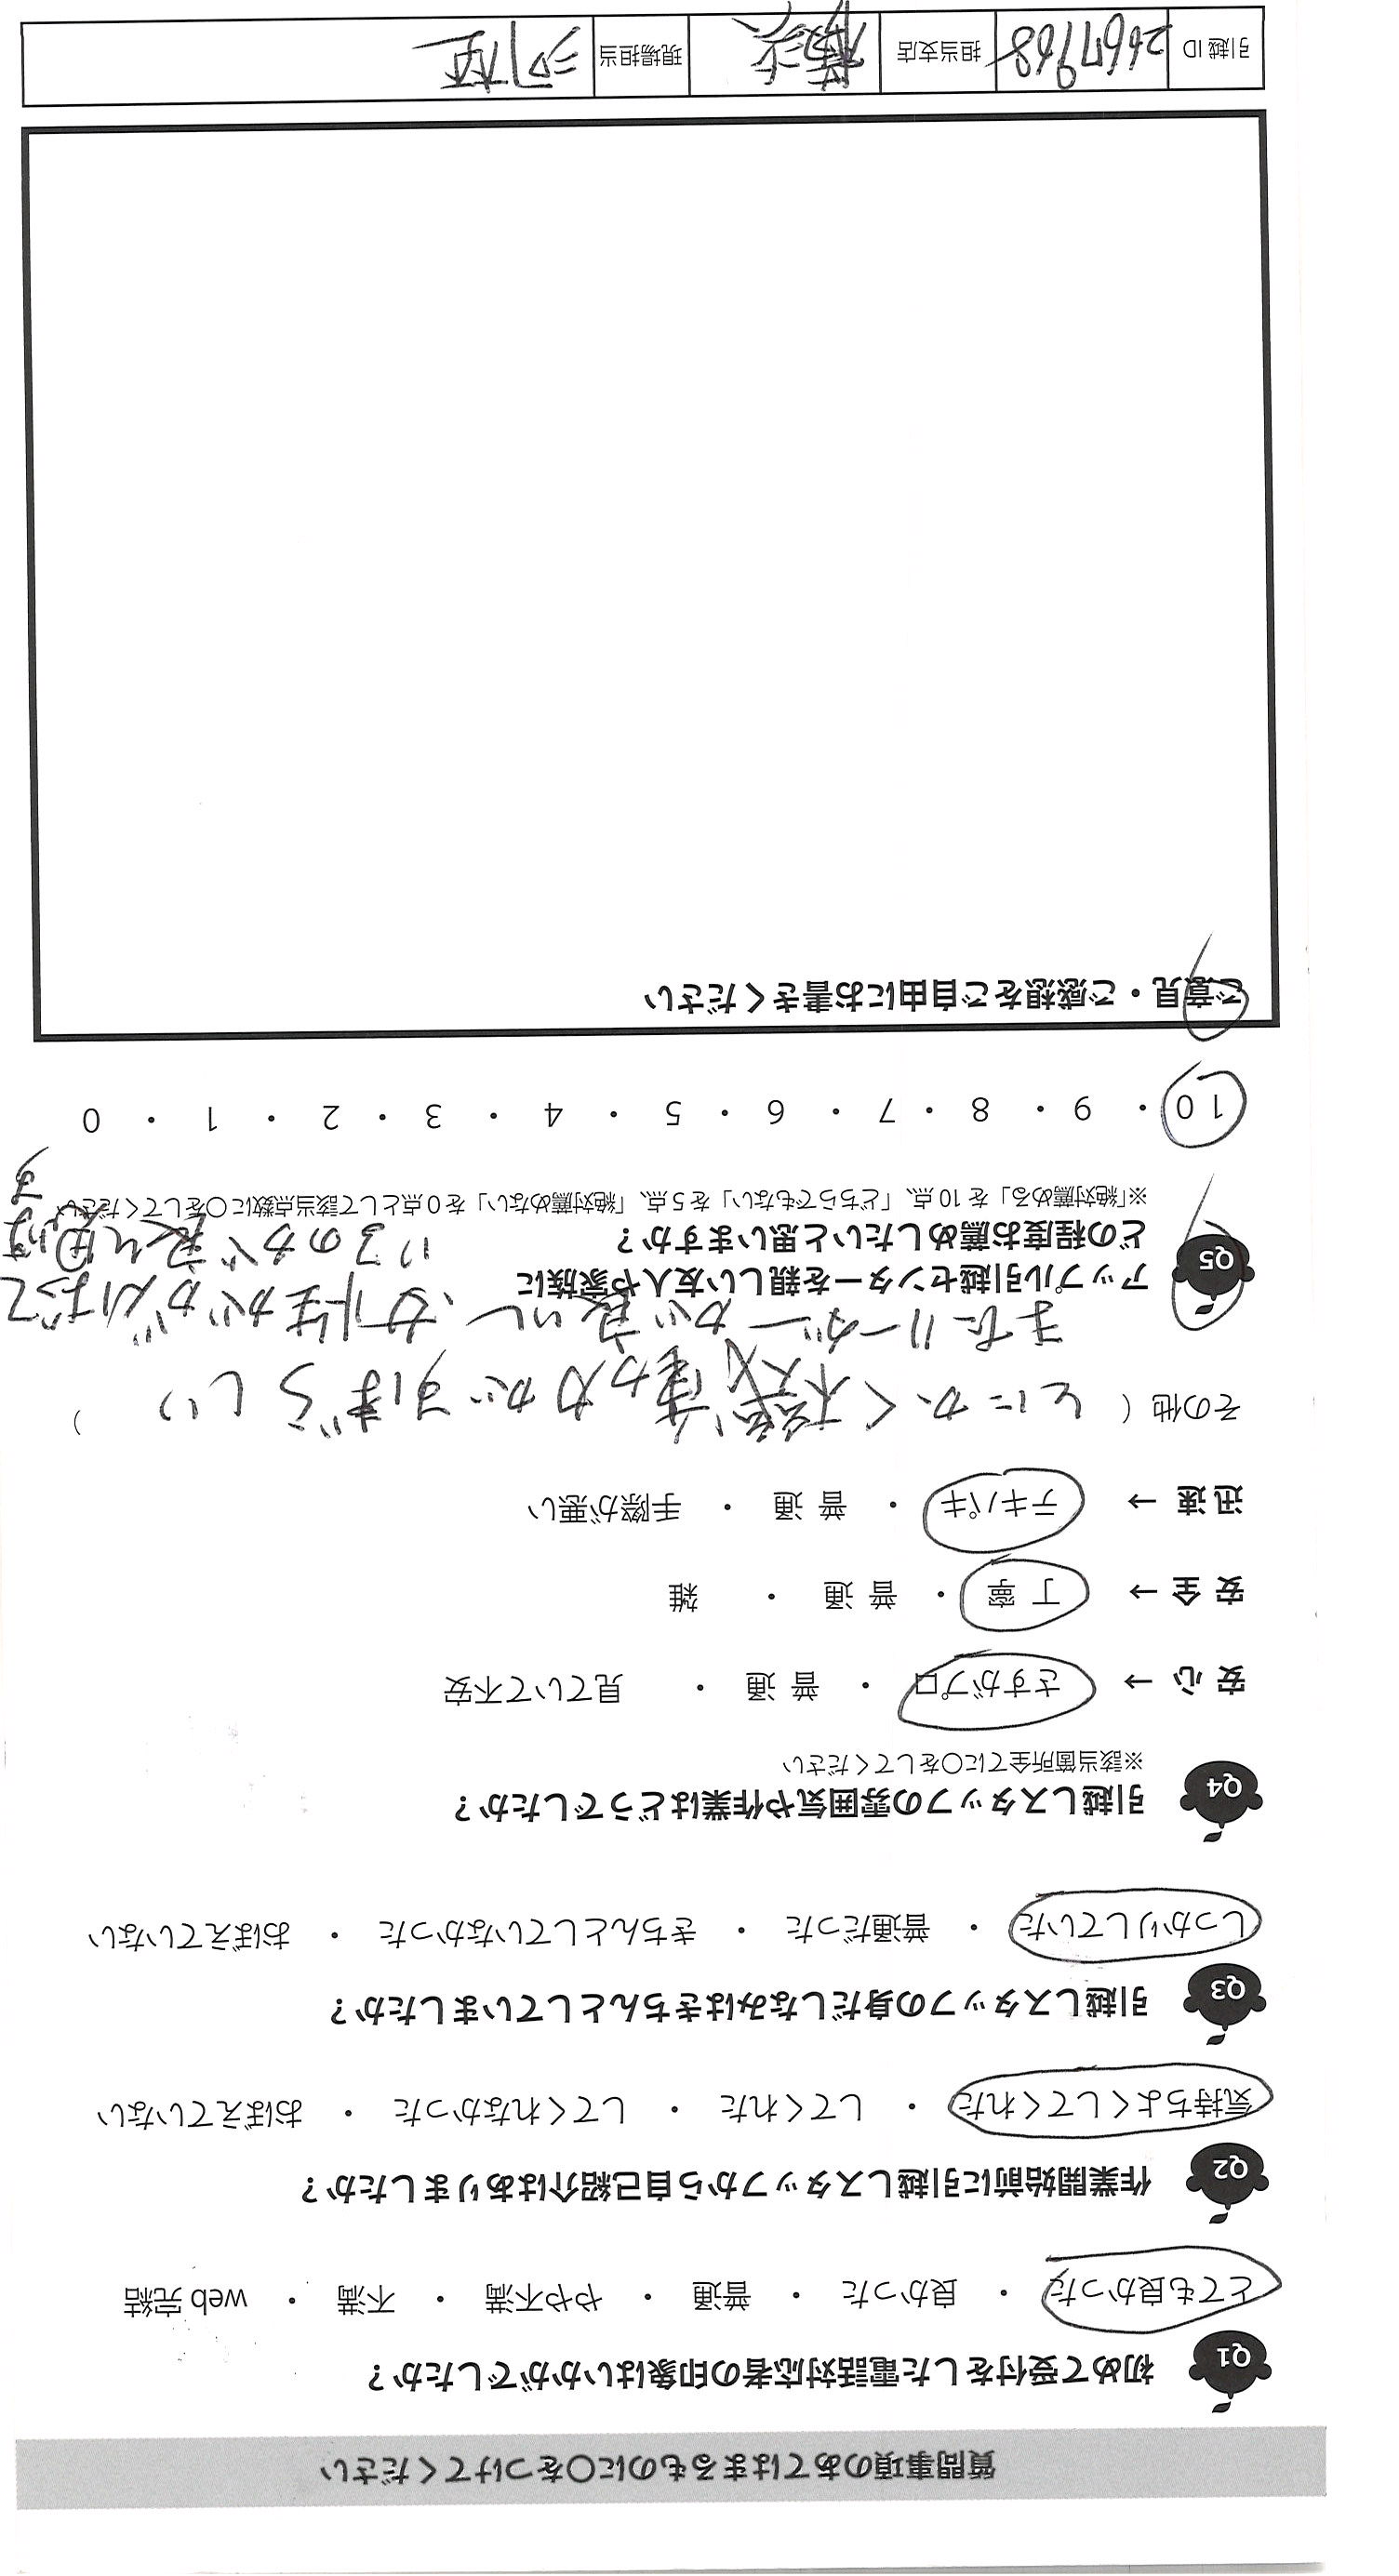 質問事項のあてはまるものに〇をつけてください
Q1 初めて受付をした電話対応者の印象はいかがでしたか？
とても良かった ・ 良かった ・ 普通 ・ やや不満 ・ 不満 ・ web完結
Q2 作業開始前に引越しスタッフから自己紹介はありましたか？
気持ちよくしてくれた ・ してくれた ・ してくれなかった ・ おぼえていない
Q3 引越しスタッフの身だしなみはきちんとしていましたか？
しっかりしていた ・ 普通だった ・ きちんとしていなかった ・ おぼえていない
Q4 引越しスタッフの雰囲気や作業はどうでしたか？
※該当箇所全てに〇をしてください
安心 → さすがプロ ・ 普通 ・ 見ていて不安
安全 → 丁寧 ・ 普通 ・ 雑
迅速 → テキパキ ・ 普通 ・ 手際が悪い
その他（ とにかく機動力がすばらしい ）
またリーダーが良いし、女性ががんばって
いるのが良いと思います
Q5 アップル引越センターを親しい友人や家族に
どの程度お薦めしたいと思いますか？
※「絶対薦める」を10点、「どちらでもない」を5点、「絶対薦めない」を0点として該当点数に〇をしてください
10 ・ 9 ・ 8 ・ 7 ・ 6 ・ 5 ・ 4 ・ 3 ・ 2 ・ 1 ・ 0
ご意見・ご感想をご自由にお書きください
引越ID 2667968 担当支店 現場担当